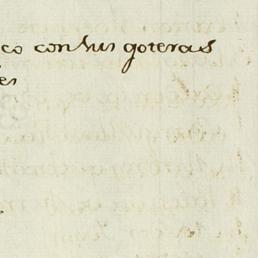 co con sus goteras
es